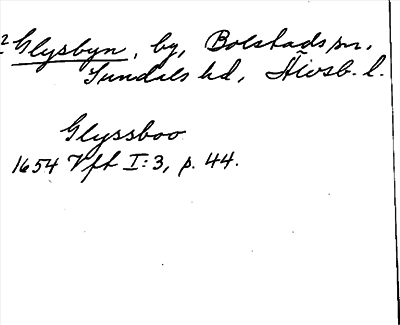 2 Glysbyn, by, Bolstads sn,
Sundals hd, Älvsb. l.
Glyssboo
1654 Vft I:3, p. 44.